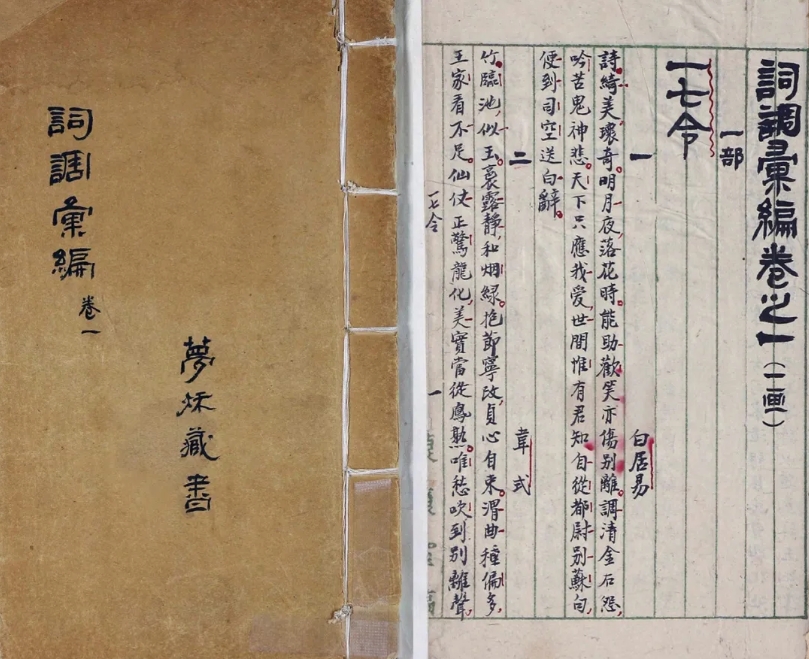 詞調彙編 卷一
夢秌藏書
詞調彙編卷之一(一画)
一部
一七令
一 白居易
詩。綺美,瓌奇。明月夜,落花時。能助歡笑,亦傷別離。調清金石怨,
吟苦鬼神悲。天下只應我愛,世間惟有君知。自從都尉別蘇句,
便到司空送白辭。
二 韋式
竹。臨池,似玉。裛露靜,和烟綠。抱節寧改,貞心自束。渭曲種偏多,
王家看不足。仙仗正驚龍化,美實當從鳳熟。唯愁吹到別離聲,
一七令 一